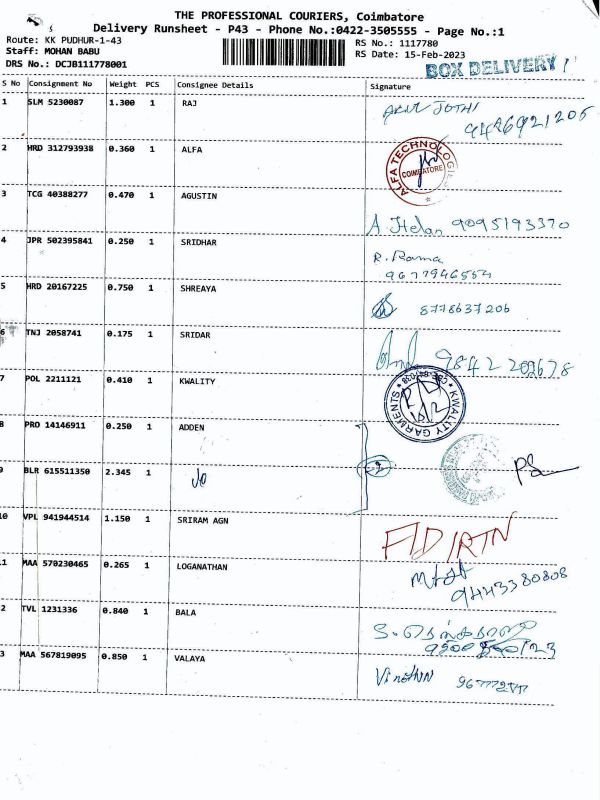 THE PROFESSIONAL COURIERS, Coimbatore
Delivery Runsheet - P43 - Phone No.:0422-3505555 - Page No.:1
Route: KK PUDHUR-1-43
Staff: MOHAN BABU
DRS No.: DCJB111778001
RS No.: 1117780
RS Date: 15-Feb-2023
BOX DELIVERY
S No Consignment No Weight PCS Consignee Details Signature
1 SLM 5230087 1.300 1 RAJ JOTHI
9486921205
2 HRD 312793938 0.360 1 ALFA ALFA TECHNOLOGIES COIMBATORE
3 TCG 40388277 0.470 1 AGUSTIN
A. Helan 9095193370
4 JPR 502395841 0.250 1 SRIDHAR R. Rama
9677946554
5 HRD 20167225 0.750 1 SHREAYA 8778637206
6 TNJ 2058741 0.175 1 SRIDAR 9842 202678
7 POL 2211121 0.410 1 KWALITY KWALITY GARMENTS
8 PRO 14146911 0.250 1 ADDEN
9 BLR 615511350 2.345 1 do
10 VPL 941944514 1.150 1 SRIRAM AGN
11 MAA 570230465 0.265 1 LOGANATHAN
9443380808
2 TVL 1231336 0.840 1 BALA
3 MAA 567819095 0.850 1 VALAYA Vinothn